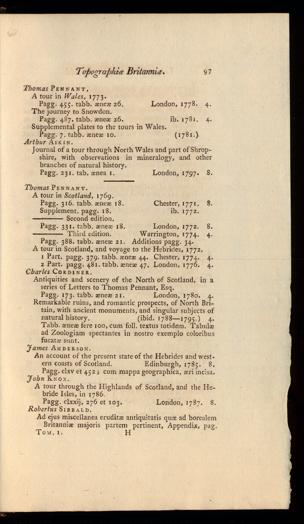 Topographiæ Britanniæ. 97
Thomas PENNANT.
A tour in Wales, 1773.
Pagg. 455. tabb. æneæ 26. London, 1778. 4.
The journey to Snowdon.
Pagg. 487. tabb. æneæ 26. ib. 1781. 4.
Supplemental plates to the tours in Wales.
Pagg. 7. tabb. æneæ 10. (1781.)
Arthur AIKIN.
Journal of a tour through North Wales and part of Shrop-
shire, with observations in mineralogy, and other
branches of natural history.
Pagg. 231. tab. ænea 1. London, 1797. 8.
Thomas PENNANT.
A tour in Scotland, 1769.
Pagg. 316. tabb. æneæ 18. Chester, 1771. 8.
Supplement. pagg. 18. ib. 1772.
——— Second edition.
Pagg. 331. tabb. æneæ 18. London, 1772. 8.
——— Third edition. Warrington, 1774. 4.
Pagg. 388. tabb. æneæ 21. Additions pagg. 34.
A tour in Scotland, and voyage to the Hebrides, 1772.
1 Part. pagg. 379. tabb. æneæ 44. Chester, 1774. 4.
2 Part. pagg. 481. tabb. æneæ 47. London, 1776. 4.
Charles CORDINER.
Antiquities and scenery of the North of Scotland, in a
series of Letters to Thomas Pennant, Esq.
Pagg. 173. tabb. æneæ 21. London, 1780. 4.
Remarkable ruins, and romantic prospects, of North Bri-
tain, with ancient monuments, and singular subjects of
natural history. (ibid. 1788—1795.) 4.
Tabb. æneæ fere 100, cum foll. textus totidem. Tabulæ
ad Zoologiam spectantes in nostro exemplo coloribus
fucatæ sunt.
James ANDERSON.
An account of the present state of the Hebrides and west-
ern coasts of Scotland. Edinburgh, 1785. 8.
Pagg. clxv et 452; cum mappa geographica, æri incisa.
John KNOX.
A tour through the Highlands of Scotland, and the He-
bride Isles, in 1786.
Pagg. clxxij, 276 et 103. London, 1787. 8.
Robertus SIBBALD.
Ad ejus miscellanea eruditæ antiquitatis quæ ad borealem
Britanniæ majoris partem pertinent, Appendix, pag.
TOM. 1. H